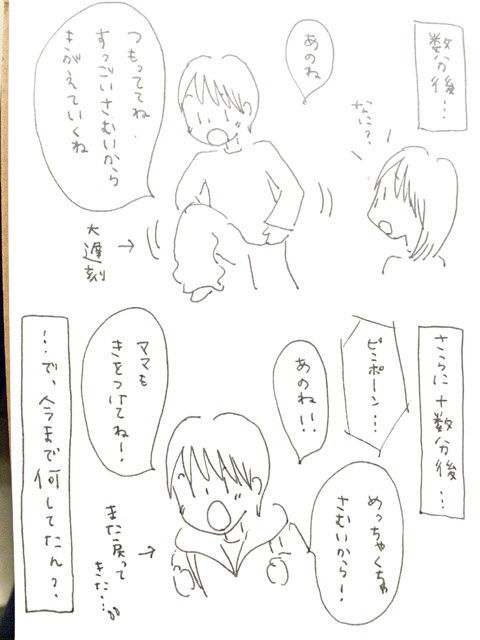 数分後…
なに？
あのね
つもっててね、
すっごいさむいから
きがえていくね
大遅刻
さらに十数分後…
ピンポーン…
あのね！！
めっちゃくちゃ
さむいから！
ママも
きをつけてね！
また戻って
きた…
…で、今まで何してたん？